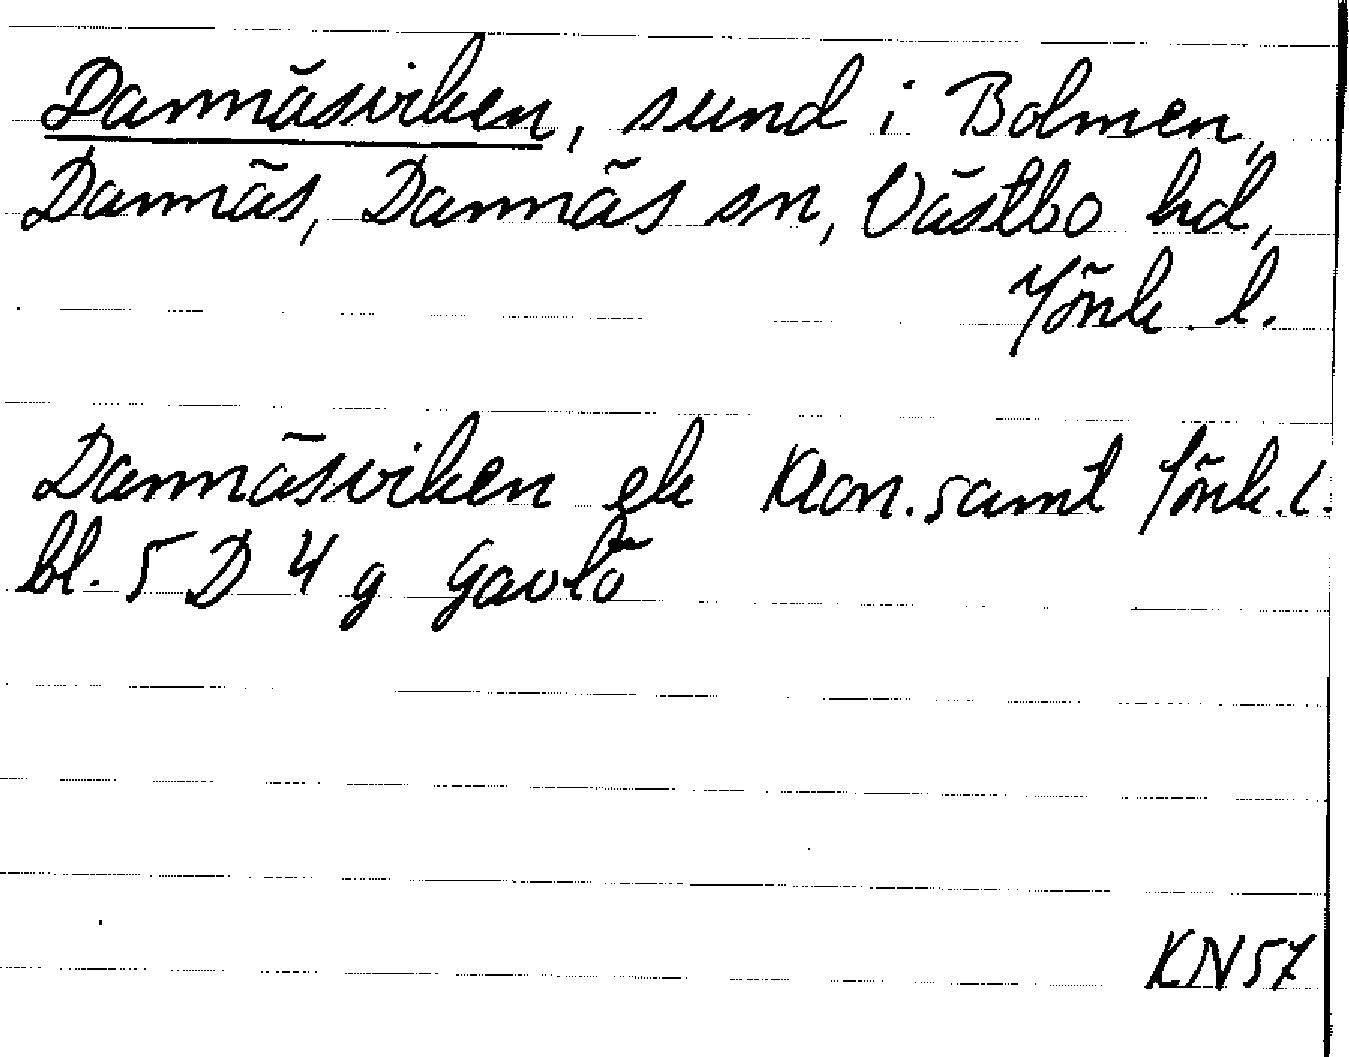 Dannäsviken, sund i Bolmen,
Dannäs, Dannäs sn, Västbo hd,
Jönk. l.
Dannäsviken ek Kon. samt Jönk. l.
bl. 5 D 4 g Gavlö
KN57